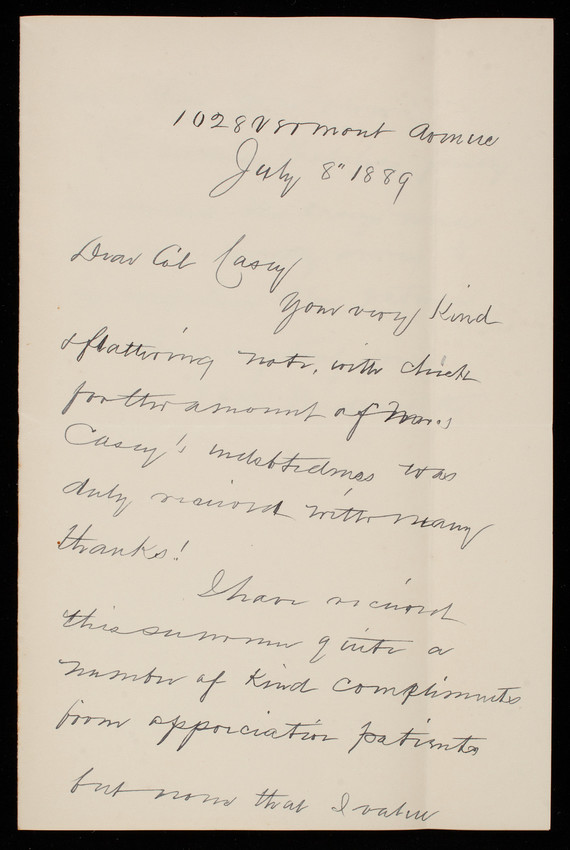 1028 Vermont Avenue
July 8" 1889
Dear Col Casey
Your very kind
& flattering note, with check
for the amount of Mrs
Casey's indebtedness was
duly received with many
thanks!
I have received
this summer quite a
number of kind compliments
from appreciative patients
but none that I value